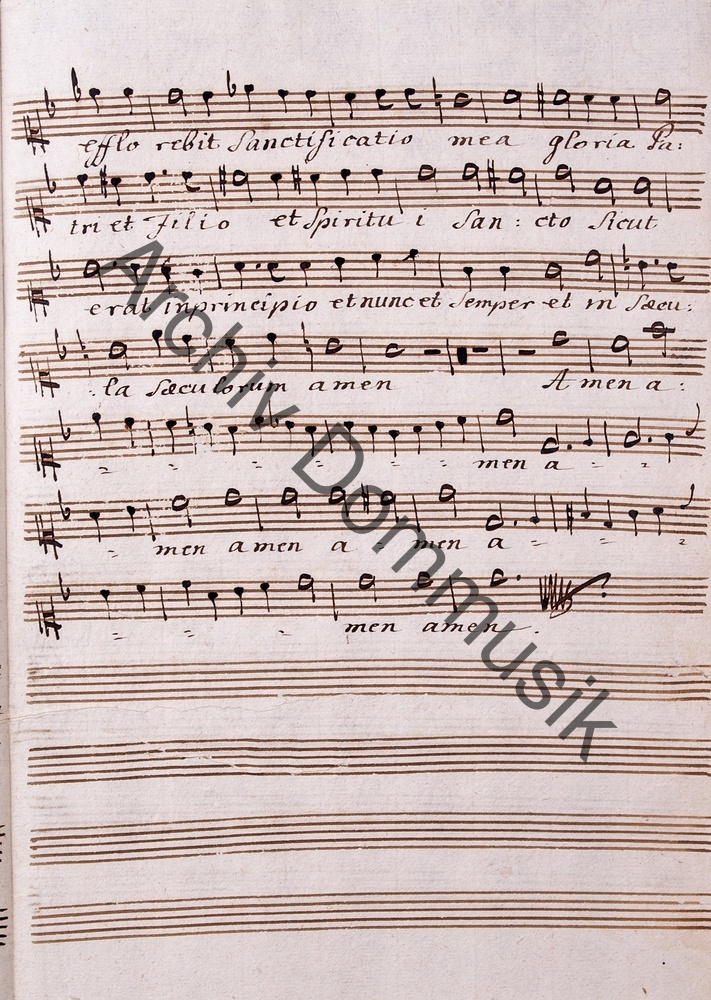 efflo rebit Sanctificatio mea gloria Pa:
tri et Filio et Spiritu i San: cto Sicut
erat in principio et nunc et Semper et in Sæcu:
la sæculorum amen Amen a:
men a
men amen a men a
men amen.
Archiv Dommusik